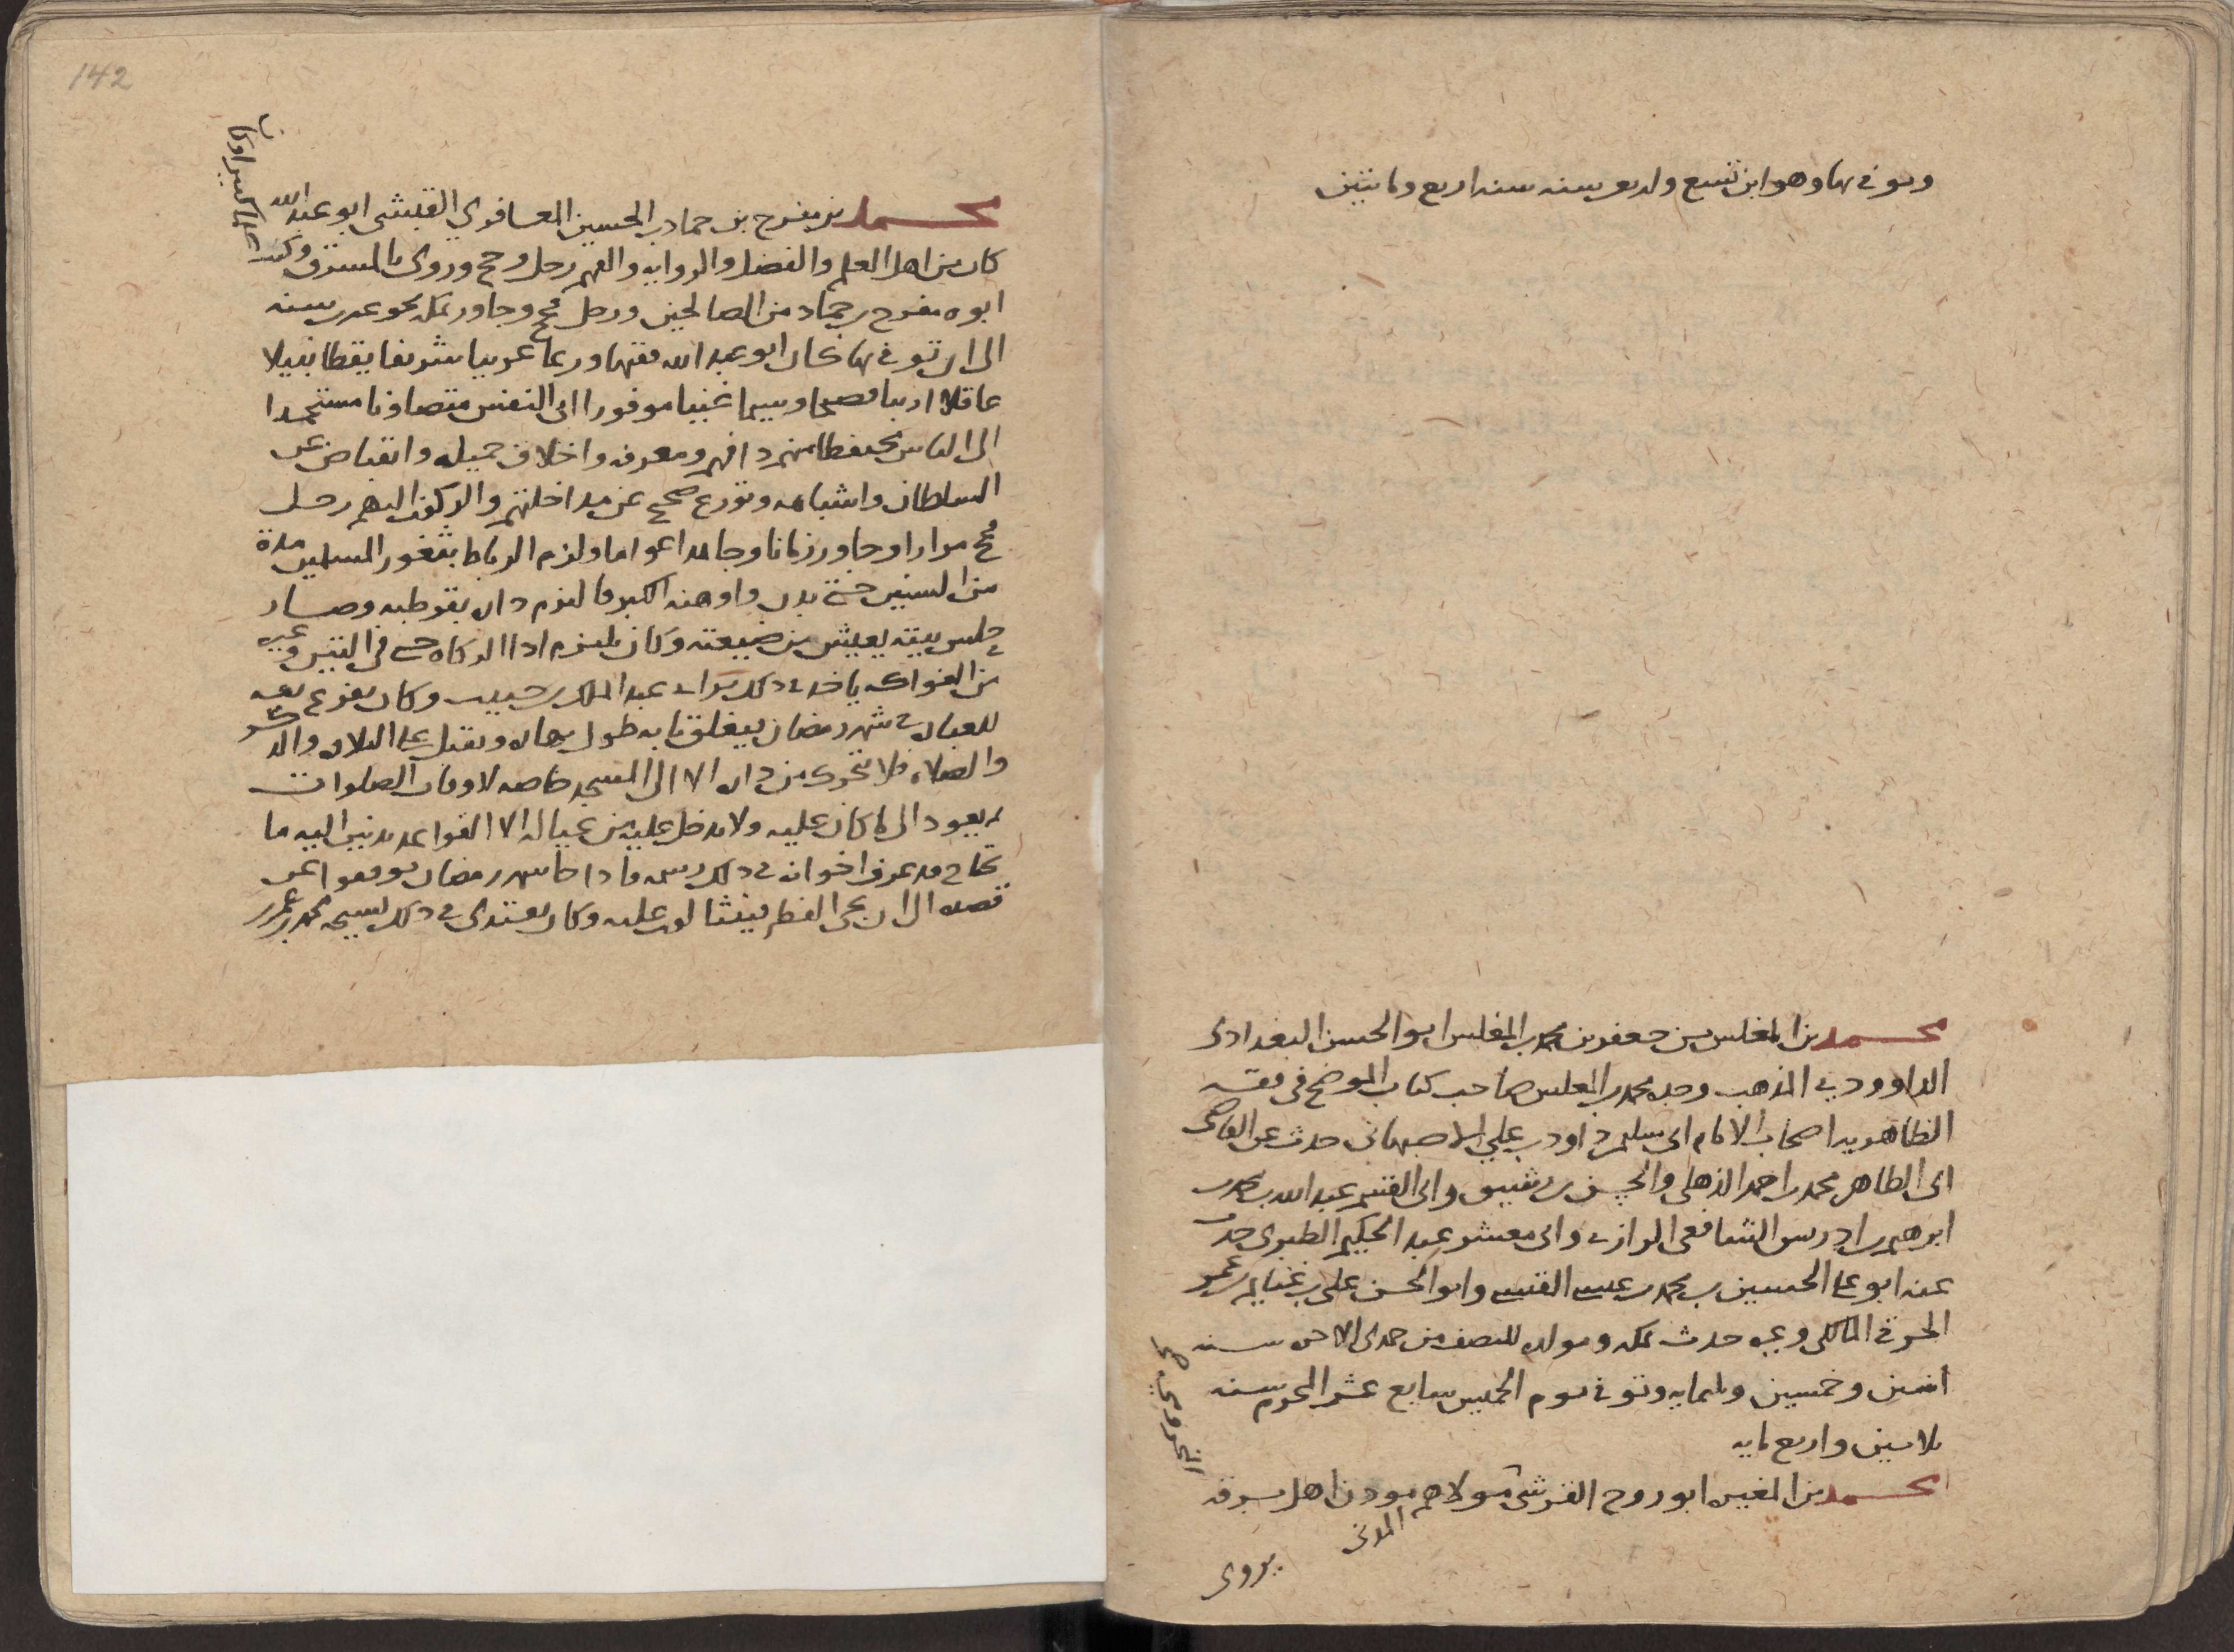 وتوفي بها وهو ابن تسع واربعين سنه سنه اربع ومايتين
محمد بن المغلس بن جعفر بن محمد بن المغلس ابو الحسن البغدادى
الداوودي المذهب وجده محمد بن المغلس صاحب كتاب الموضح فى فقه
الظاهريه اصحاب الامام ابى سليمن داود بن علي الاصبهانى حدث عن القاضى
ابى الطاهر محمد بن احمد الذهلى والحسن بن رشيق وابى القسم عبد الله بن محمد بن
ابرهيم بن ادريس الشافعى الرازي وابى معشر عبد الحكيم الطبرى حدث
عنه ابو على الحسين بن محمد بن عيسى القيسي وابو الحسن على بن غنايم بن عمر
الحوفى المالكى وغيره حدث بمكه ومولده للنصف من جمدى الاخره سنه
اثنين وخمسين وثلثمايه وتوفى يوم الخميس سابع عشر المحرم سنه
ثلاثين واربع مايه
محمد بن المغيره ابو روح القرشى مولاهم مودن اهل برقه
المدنى
يروى
142
محمد بن مفرح بن حماد بن الحسين المعافري القبشى ابو عبد الله
كان من اهل العلم والفضل والروايه والفهم رحل وحج وروى بالمشرق وكتب
علما كثيرا وكان
ابوه مفرح بن حماد من الصالحين ورحل فحج وجاور بمكه نحو عشرين سنه
الى ان توفى بها فكان ابو عبد الله فقيها ورعا عربيا شريفا يقظا نبيلا
عاقلا اديبا فصيحا وسيما غنيا موفورا ابى النفس متصاونا مستحمدا
الى الناس متحفظا منهم ذا فهم ومعرفه واخلاق جميله وانقباض عن
السلطان واشباهه وتورع صحيح عن مداخلتهم والركون اليهم رحل
فحج مرارا وجاور زمانا وجاهد اعواما ولزم الرباط بثغور المسلمين مدة
من السنين حتى بدن واوهنه الكبر فالتزم داره بقرطبه وصار
حلس بيته يعيش من ضيعته وكان يلتزم ادا الزكاه حتى فى التين وغيره
من الفواكه ياخذ فى ذلك براى عبد الملك بن حبيب وكان يفرغ نفسه
للعباده فى شهر رمضان يغلق بابه طول نهاره ويقبل على التلاوه والذكر
والصلاه فلا يتحرك من داره الا الى المسجد خاصه لاوقات الصلوات
ثم يعود الى ما كان عليه ولا يدخل عليه من عياله الا القواعد يدنين اليه ما
يحتاج قد عرف اخوانه فى ذلك رسمه فاذا جا شهر رمضان توقفوا عن
قصده الى ان يجى الفطر فينثالون عليه وكان يقتدى فى ذلك بشيخه محمد بن عمر